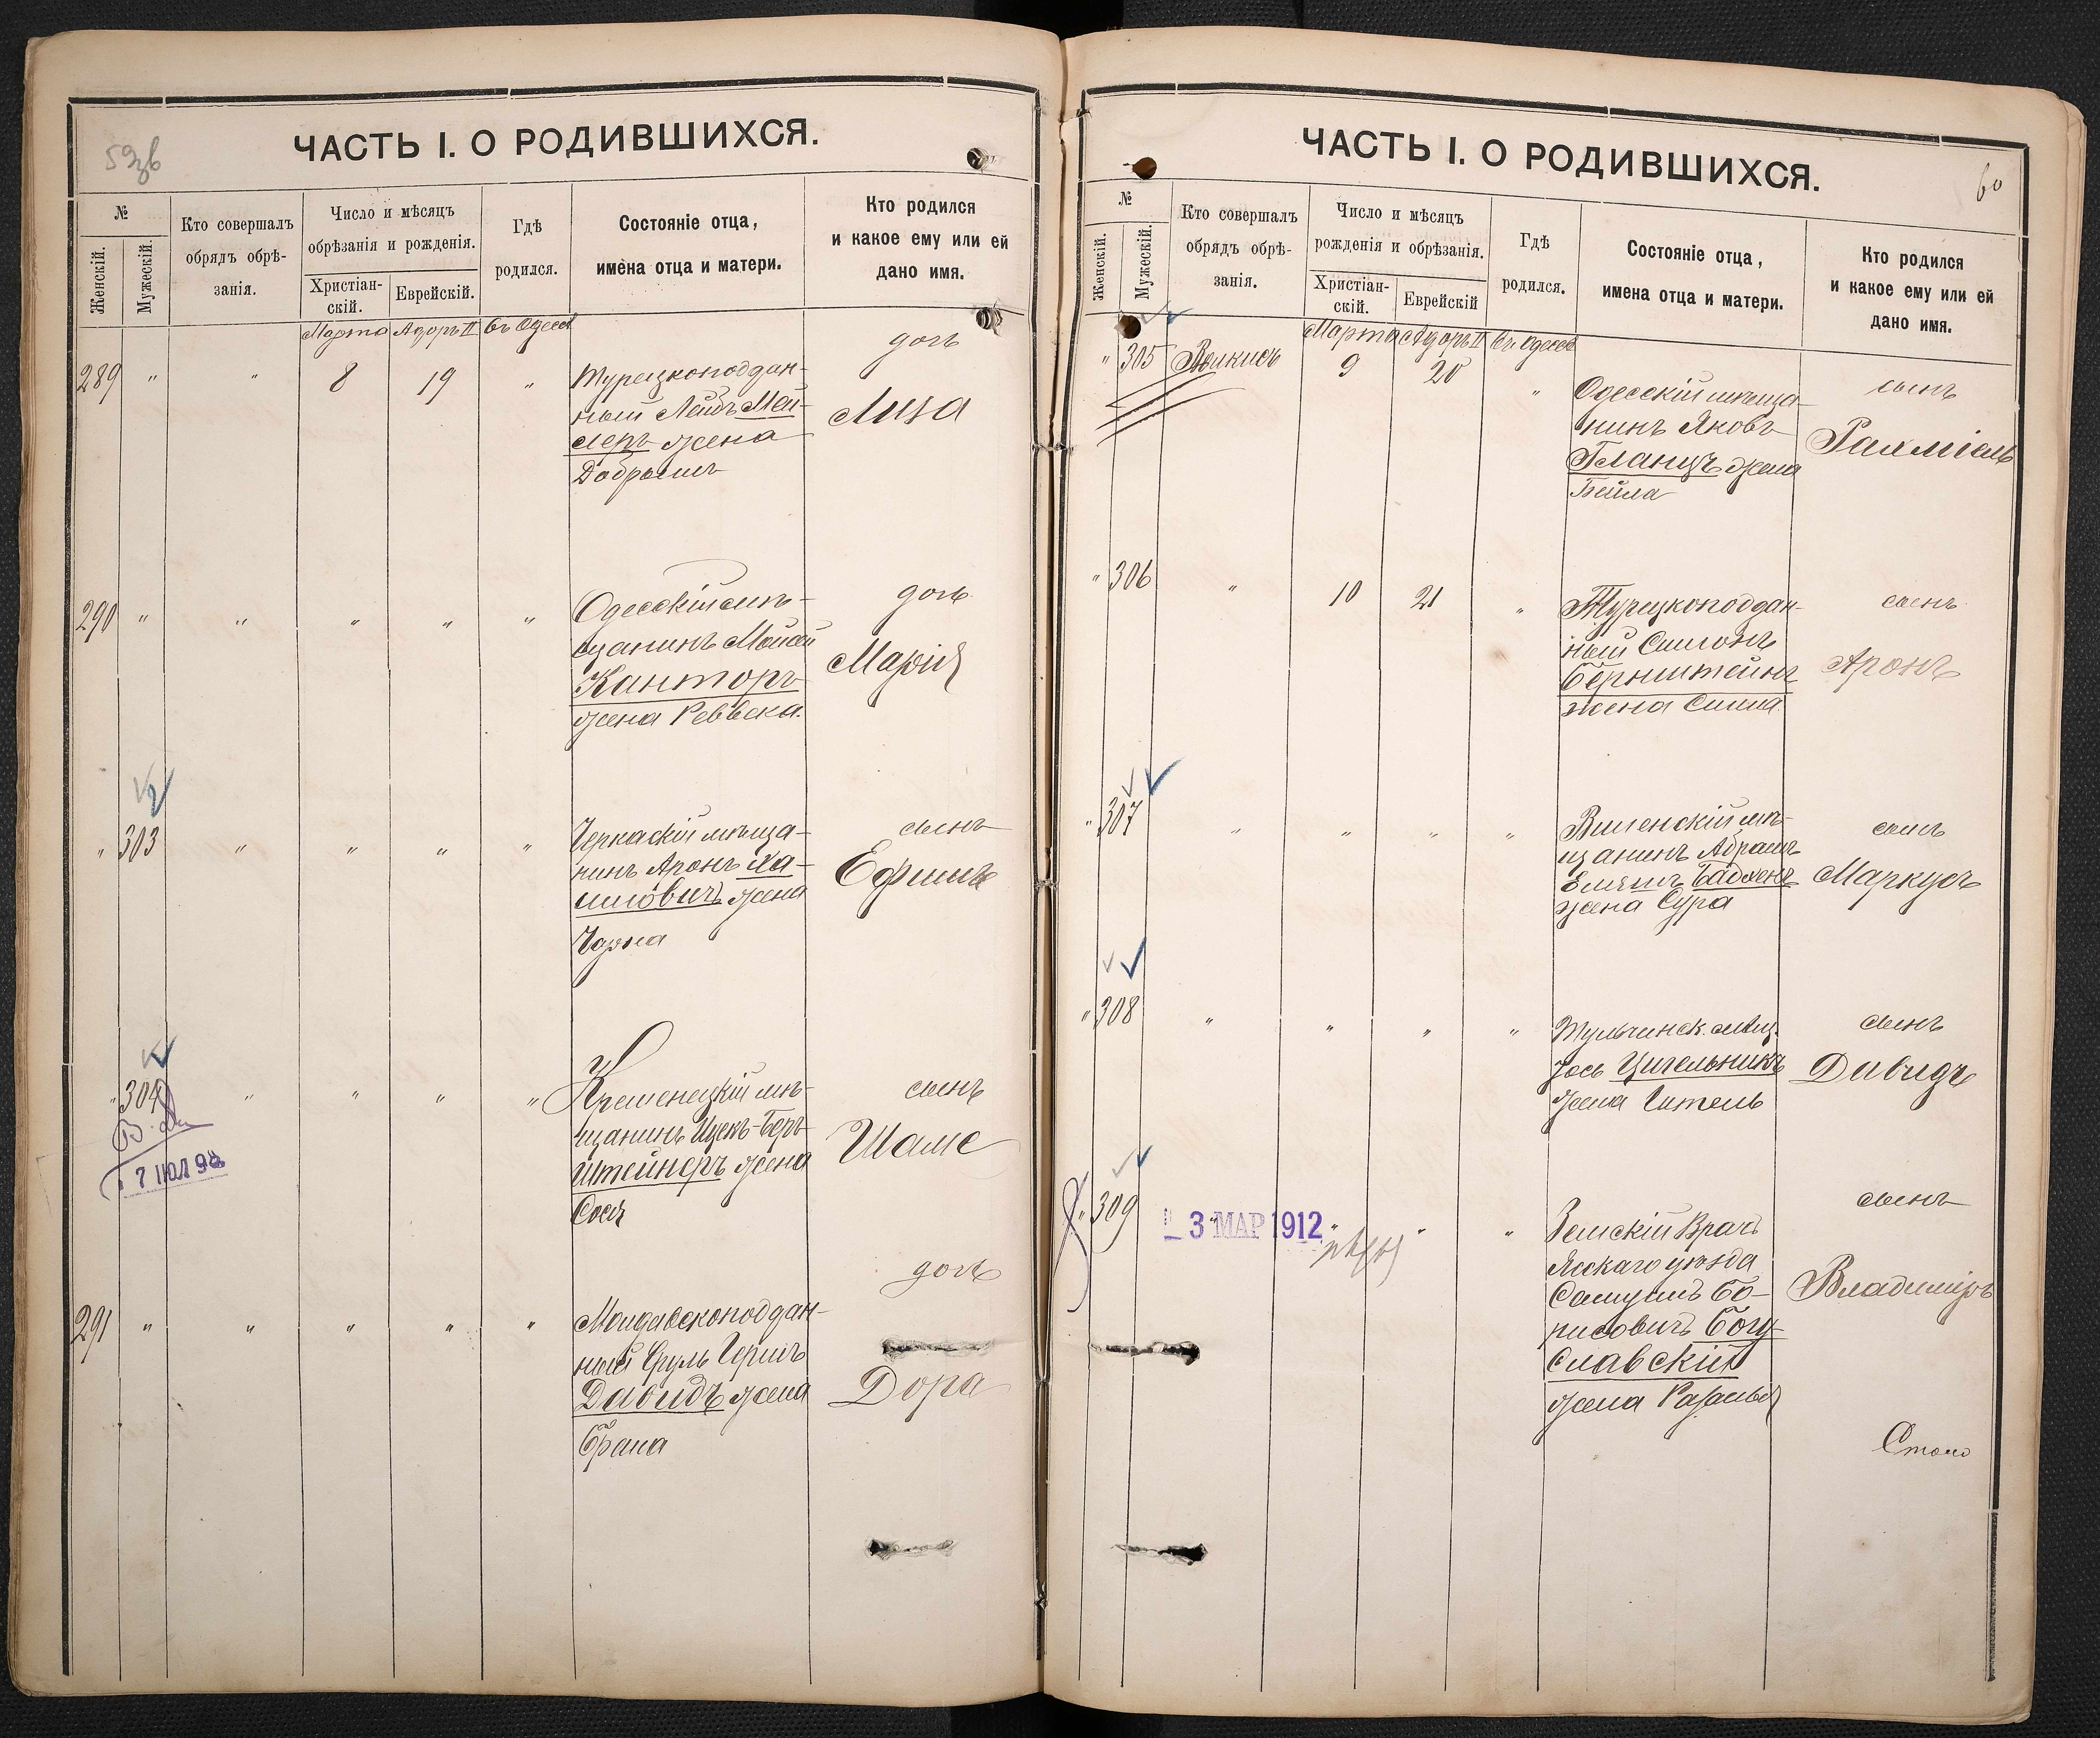 59зв
ЧАСТЬ I. О РОДИВШИХСЯ.
№
Женскій.
Мужескій.
Кто совершалъ
обрядъ обрѣ-
занія.
Число и мѣсяцъ
обрѣзанія и рожденія.
Христіан-
скій.
Еврейскій.
Гдѣ
родился.
Состояніе отца,
имена отца и матери.
Кто родился
и какое ему или ей
дано имя.
Марта Адоръ II Въ Одессѣ
289 " " 8 19 "
Турецкоподдан-
ный Лейбъ Мей-
слеръ жена
Добрышъ
дочь
Лиза
290 " " " " "
Одесскій мѣ-
щанинъ Мойсей
Канторъ
жена Реввека.
дочь
Марія
" 303 " " " "
Черкаскій мѣща-
нинъ Аронъ Ха-
имовичъ жена
Чарна
сынъ
Ефимъ
" 304 " " " "
7 ІЮЛ 98
Кременецкій мѣ-
щанинъ Ицекъ-Беръ
Штейнеръ жена
Сося
сынъ
Шаме
291 " " " " "
Молдавскоподдан-
ный Сруль Гершъ
Давидъ жена
Брана
дочь
Дора
60
ЧАСТЬ I. О РОДИВШИХСЯ.
№
Женскій.
Мужескій.
Кто совершалъ
обрядъ обрѣ-
занія.
Число и мѣсяцъ
рожденія и обрѣзанія.
Христіан-
скій.
Еврейскій
Гдѣ
родился.
Состояніе отца,
имена отца и матери.
Кто родился
и какое ему или ей
дано имя.
Марта Адоръ II Въ Одессѣ
" 305 9 20 "
Одесскій мѣща-
нинъ Яковъ
Гланцъ жена
Бейла
сынъ
Рахміель
" 306 " 10 21 "
Турецкоподдан-
ный Симонъ
Бернштейнъ
жена Сима
сынъ
Аронъ
" 307 " " " "
Виленскій мѣ-
щанинъ Абрамъ
Бадхенъ
жена Сура
сынъ
Маркусъ
" 308 " " " "
Тульчинск. мѣщ.
Іось Цигельникъ
жена Гитель
сынъ
Давидъ
" 309 " " "
3 МАР 1912
Земскій Врачъ
Ясскаго уѣзда
Самуилъ Бо-
рисовичъ Богу-
славскій
жена Розалья
сынъ
Владиміръ